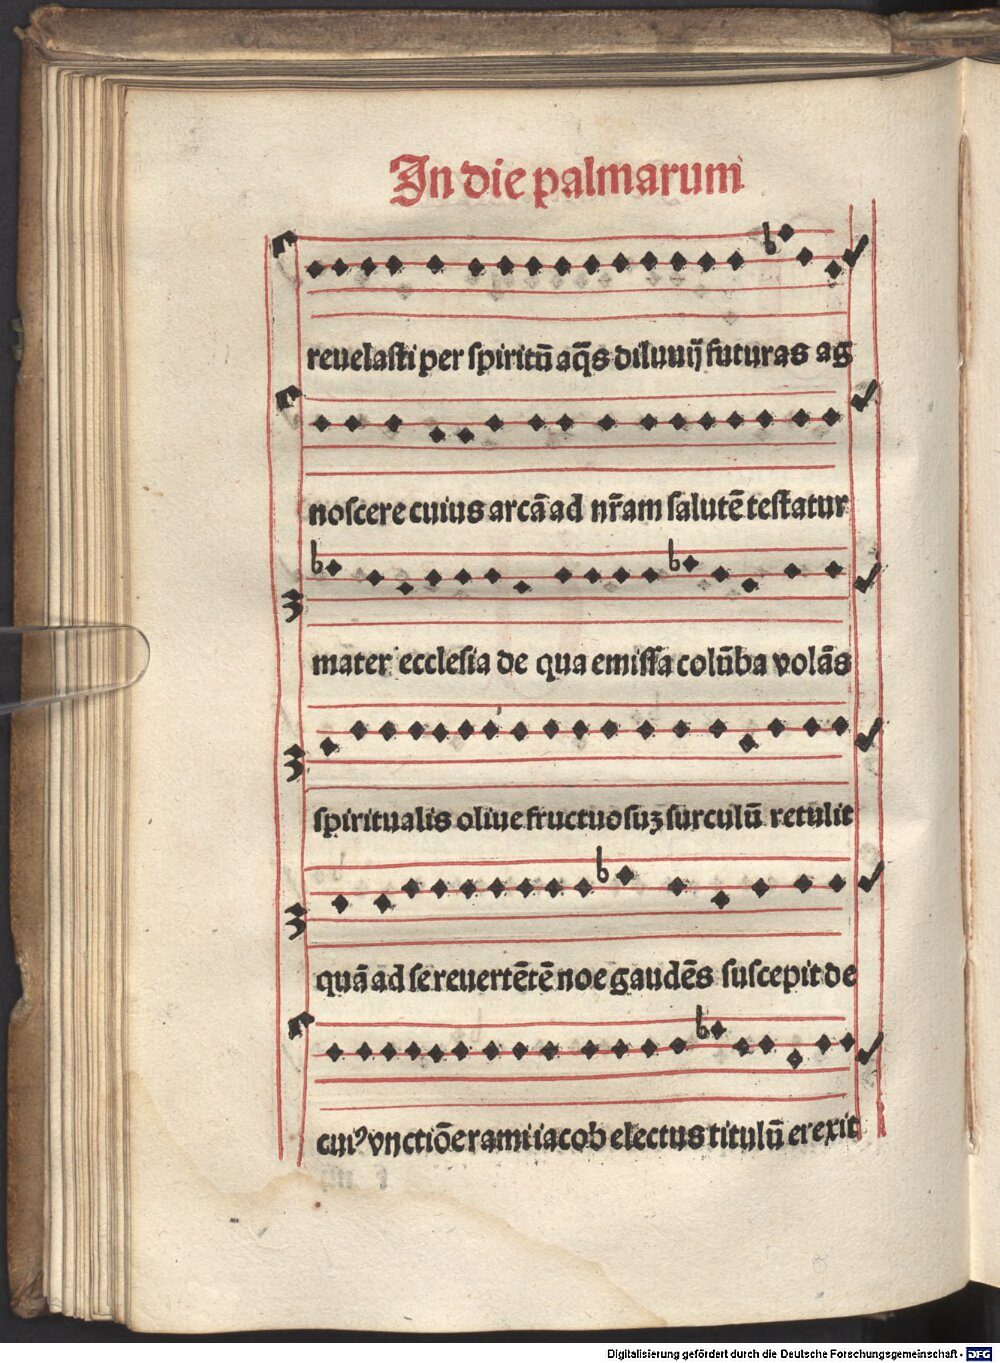 In die palmarum
reuelasti per spiritū aq̄s diluuij futuras ag
noscere cuius arcā ad nr̄am salutē testatur
mater ecclesia de qua emissa colūba volās
spiritualis oliue fructuosuꝫ surculū retulit
quā ad se reuertētē noe gaudēs suscepit de
cuiꝰ vnctiōe rami iacob electus titulū erexit
Digitalisierung gefördert durch die Deutsche Forschungsgemeinschaft - DFG